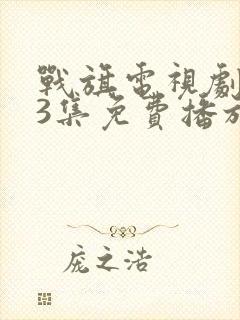 戰旗電視劇
3集免費播放
庞之浩